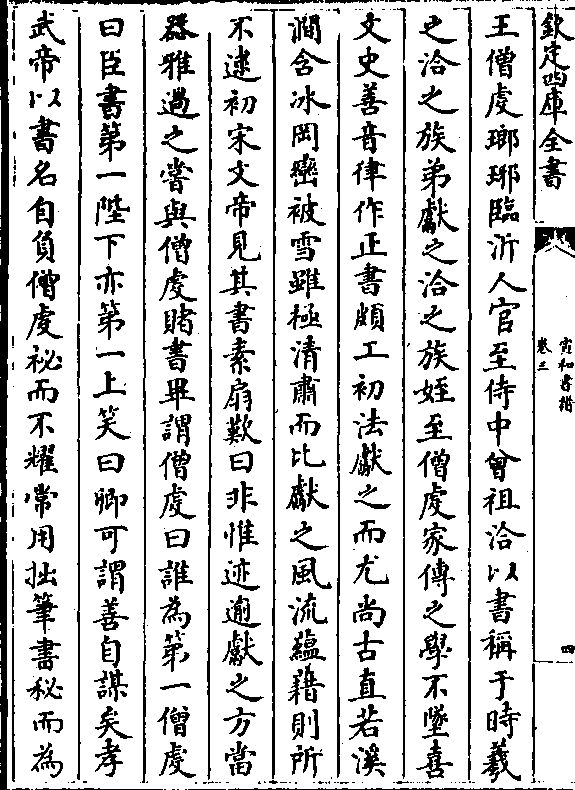 欽定四庫全書
宣和書譜
卷三
四
王僧虔瑯琊臨沂人官至侍中曾祖洽以書稱于時羲
之洽之族弟獻之洽之族姪至僧虔家傳之學不墜喜
文史善音律作正書頗工初法獻之而尤尚古直若溪
澗含冰岡巒被雪雖極清肅而比獻之風流蘊藉則所
不逮初宋文帝見其書素扇歎曰非惟迹逾獻之方當
器雅過之嘗與僧虔賭書畢謂僧虔曰誰為第一僧虔
曰臣書第一陛下亦第一上笑曰卿可謂善自謀矣孝
武帝以書名自負僧虔祕而不耀常用拙筆書秘而為